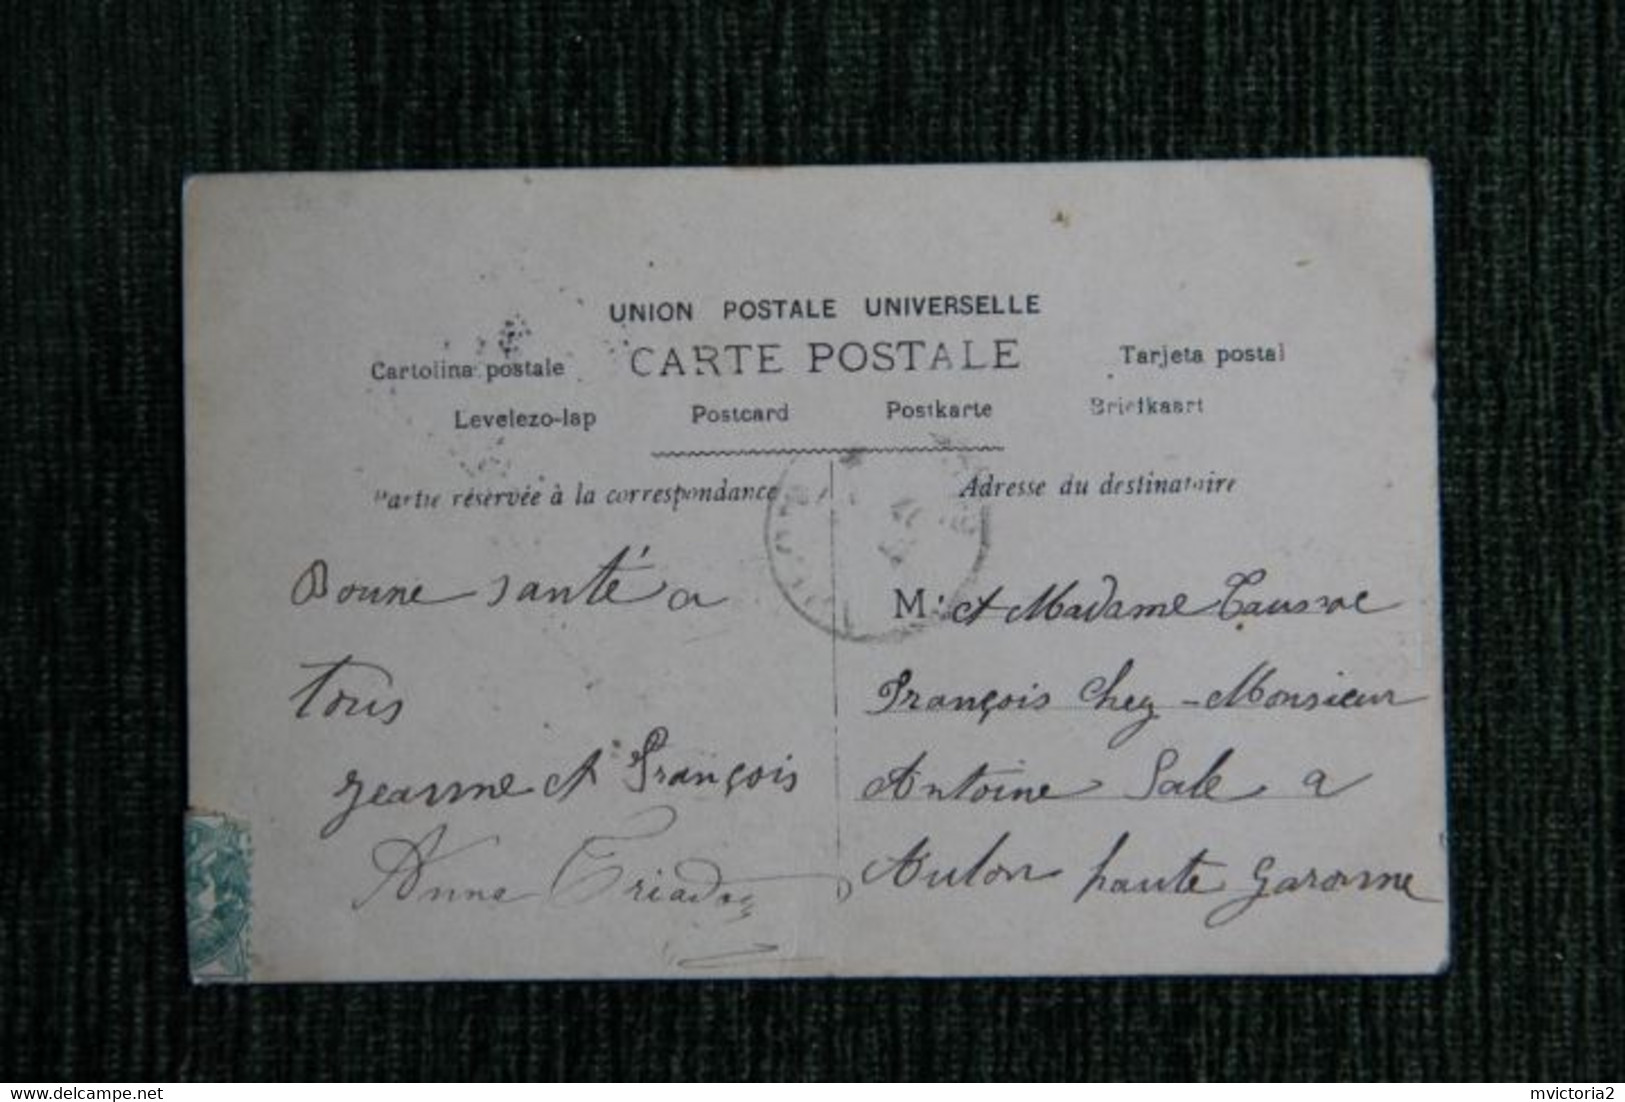 UNION POSTALE UNIVERSELLE
CARTE POSTALE
Cartolina postale
Tarjeta postal
Levelezo-lap Postcard Postkarte Briefkaart
Partie réservée à la correspondance
Adresse du destinataire
Bonne santé a
tous
Jeanne et François
Anna
M. et Madame
François chez Monsieur
Antoine Sale a
Aulon haute garonne
www.delcampe.net
mvictoria2